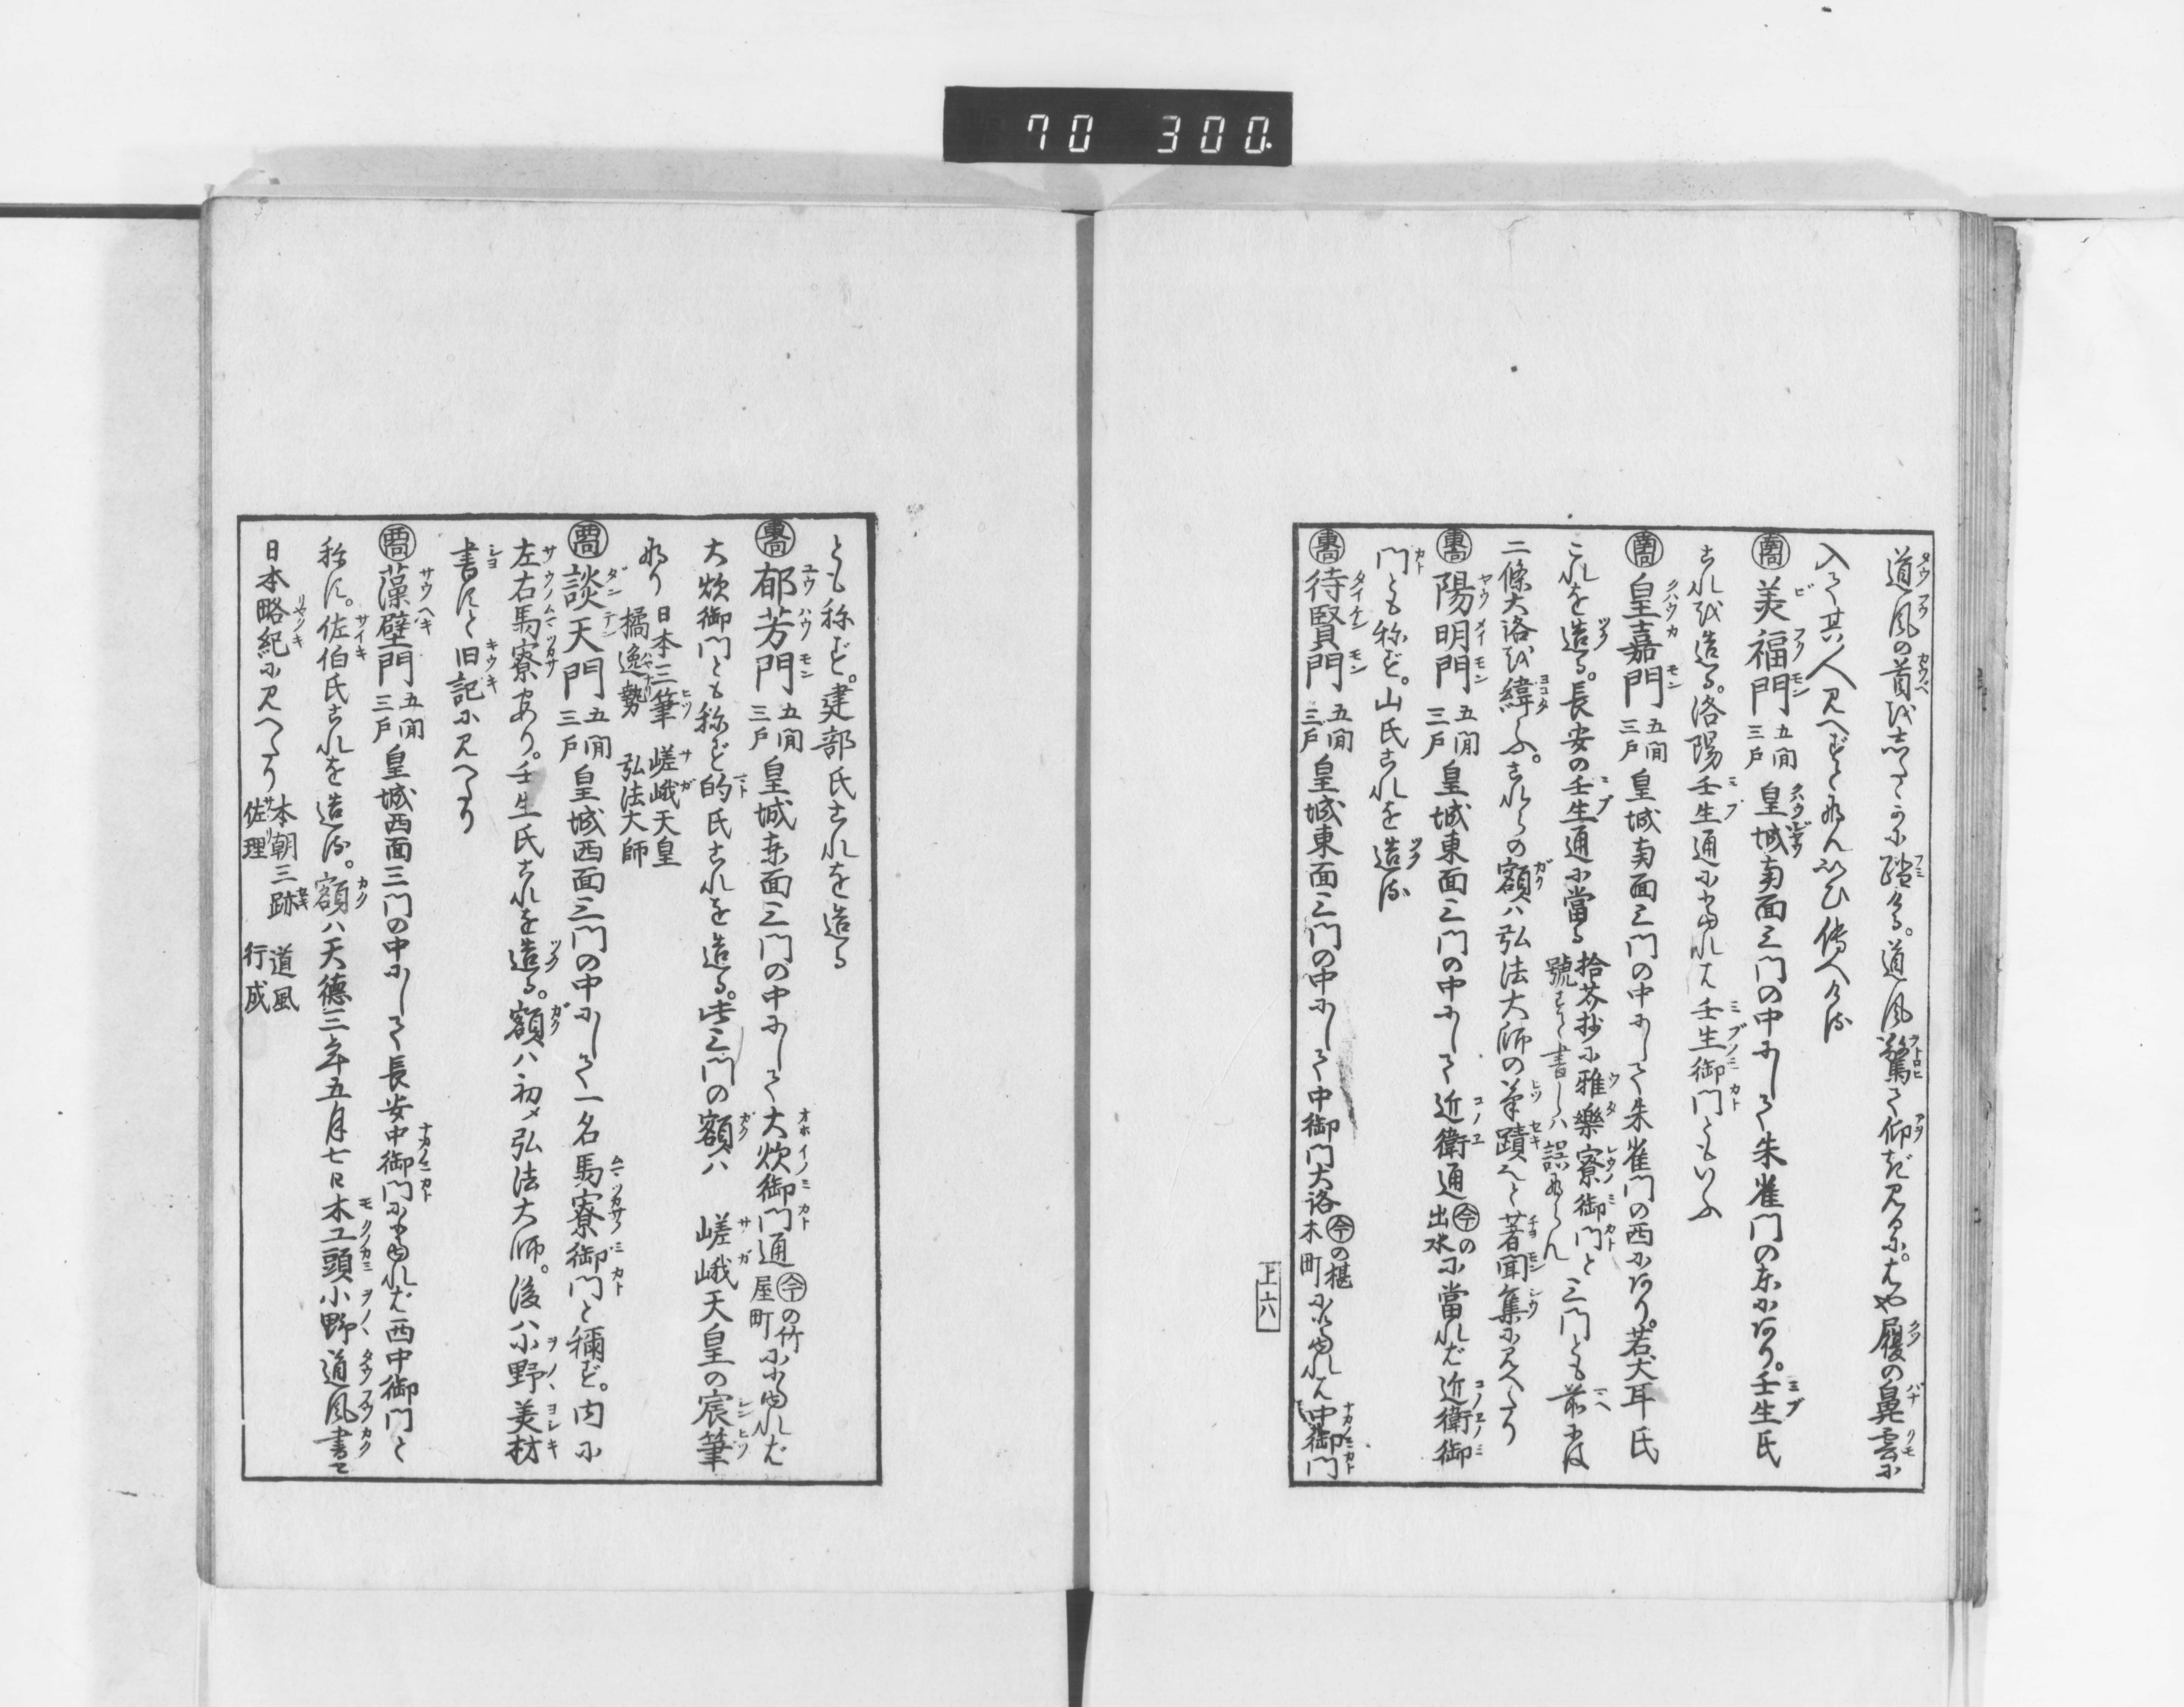 70 300.
道風の首を志たゝかに踏ける。道風驚て仰ぎ見るに。はや履の鼻雲に
入て其人見へずとなん云ひ傳へける
南面 美福門 五間三戸 皇城南面三門の中にして朱雀門の東にあり。壬生氏
これを造る。洛陽壬生通に当れば壬生御門ともいふ
南面 皇嘉門 五間三戸 皇城南面三門の中にして朱雀門の西にあり。若犬耳氏
これを造る。長安の壬生通に當る 拾芥抄に雅樂寮御門と号すと書しハ誤ならん 三門とも前には
二條大路を緯ふ。これらの額ハ弘法大師の筆蹟也と著聞集に見へたり
東面 陽明門 五間三戸 皇城東面三門の中にして近衛通 今の出水 に當れば近衛御
門とも称ず。山氏これを造る
東面 待賢門 五間三戸 皇城東面三門の中にして中御門大路 今の椹木町 に当れば中御門
上六
とも称ず。建部氏これを造る
東面 郁芳門 五間三戸 皇城東面三門の中にして大炊御門通 今の竹屋町 に当れば
大炊御門とも称ず的氏これを造る。此三門の額ハ 嵯峨天皇の宸筆
なり 日本三筆 嵯峨天皇 橘逸勢 弘法大師
西面 談天門 五間三戸 皇城西面三門の中にして一名馬寮御門と称ず。内に
左右馬寮あり。壬生氏これを造る。額ハ初メ弘法大師。後ハ小野美材
書すと旧記に見へたり
西面 藻壁門 五間三戸 皇城西面三門の中にして長安中御門に当れば西中御門と
称す。佐伯氏これを造る。額ハ天德三年五月七日木工頭小野道風書て
日本略紀に見へたり 本朝三跡 道風 佐理 行成